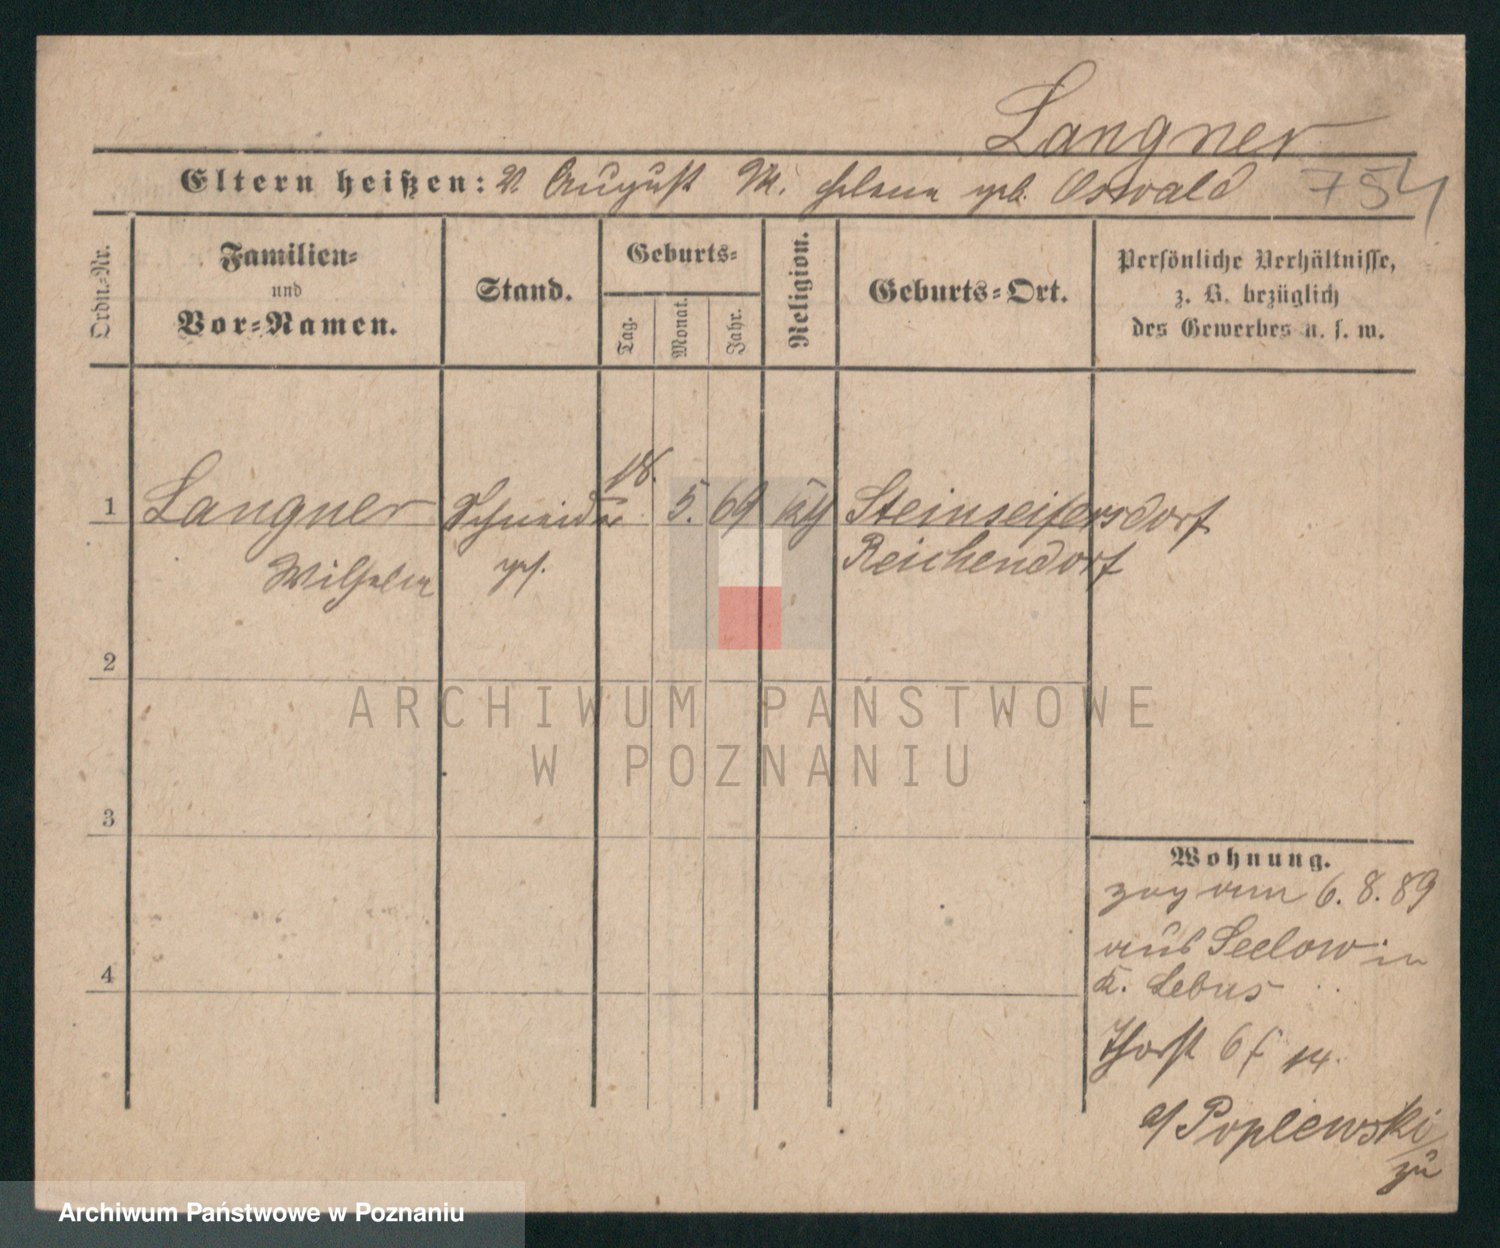 Langner
Eltern heißen: V. August M. Helene geb. Oswald 754
Ordn.-Nr.
Familien-
und
Vor-Namen.
Stand.
Geburts-
Tag.
Monat.
Jahr.
Religion.
Geburts-Ort.
Persönliche Verhältnisse,
z. B. bezüglich
des Gewerbes u. s. w.
18.
1 Langner Schneider 5. 69 Steinseifersdorf
Wilhelm ges. Reichendorf
2
3
4
Wohnung.
zog am 6.8.89
aus Seelow in
K. Lebus
6 14.
a/ Poplewski
zu
ARCHIWUM PAŃSTWOWE
W POZNANIU
Archiwum Państwowe w Poznaniu